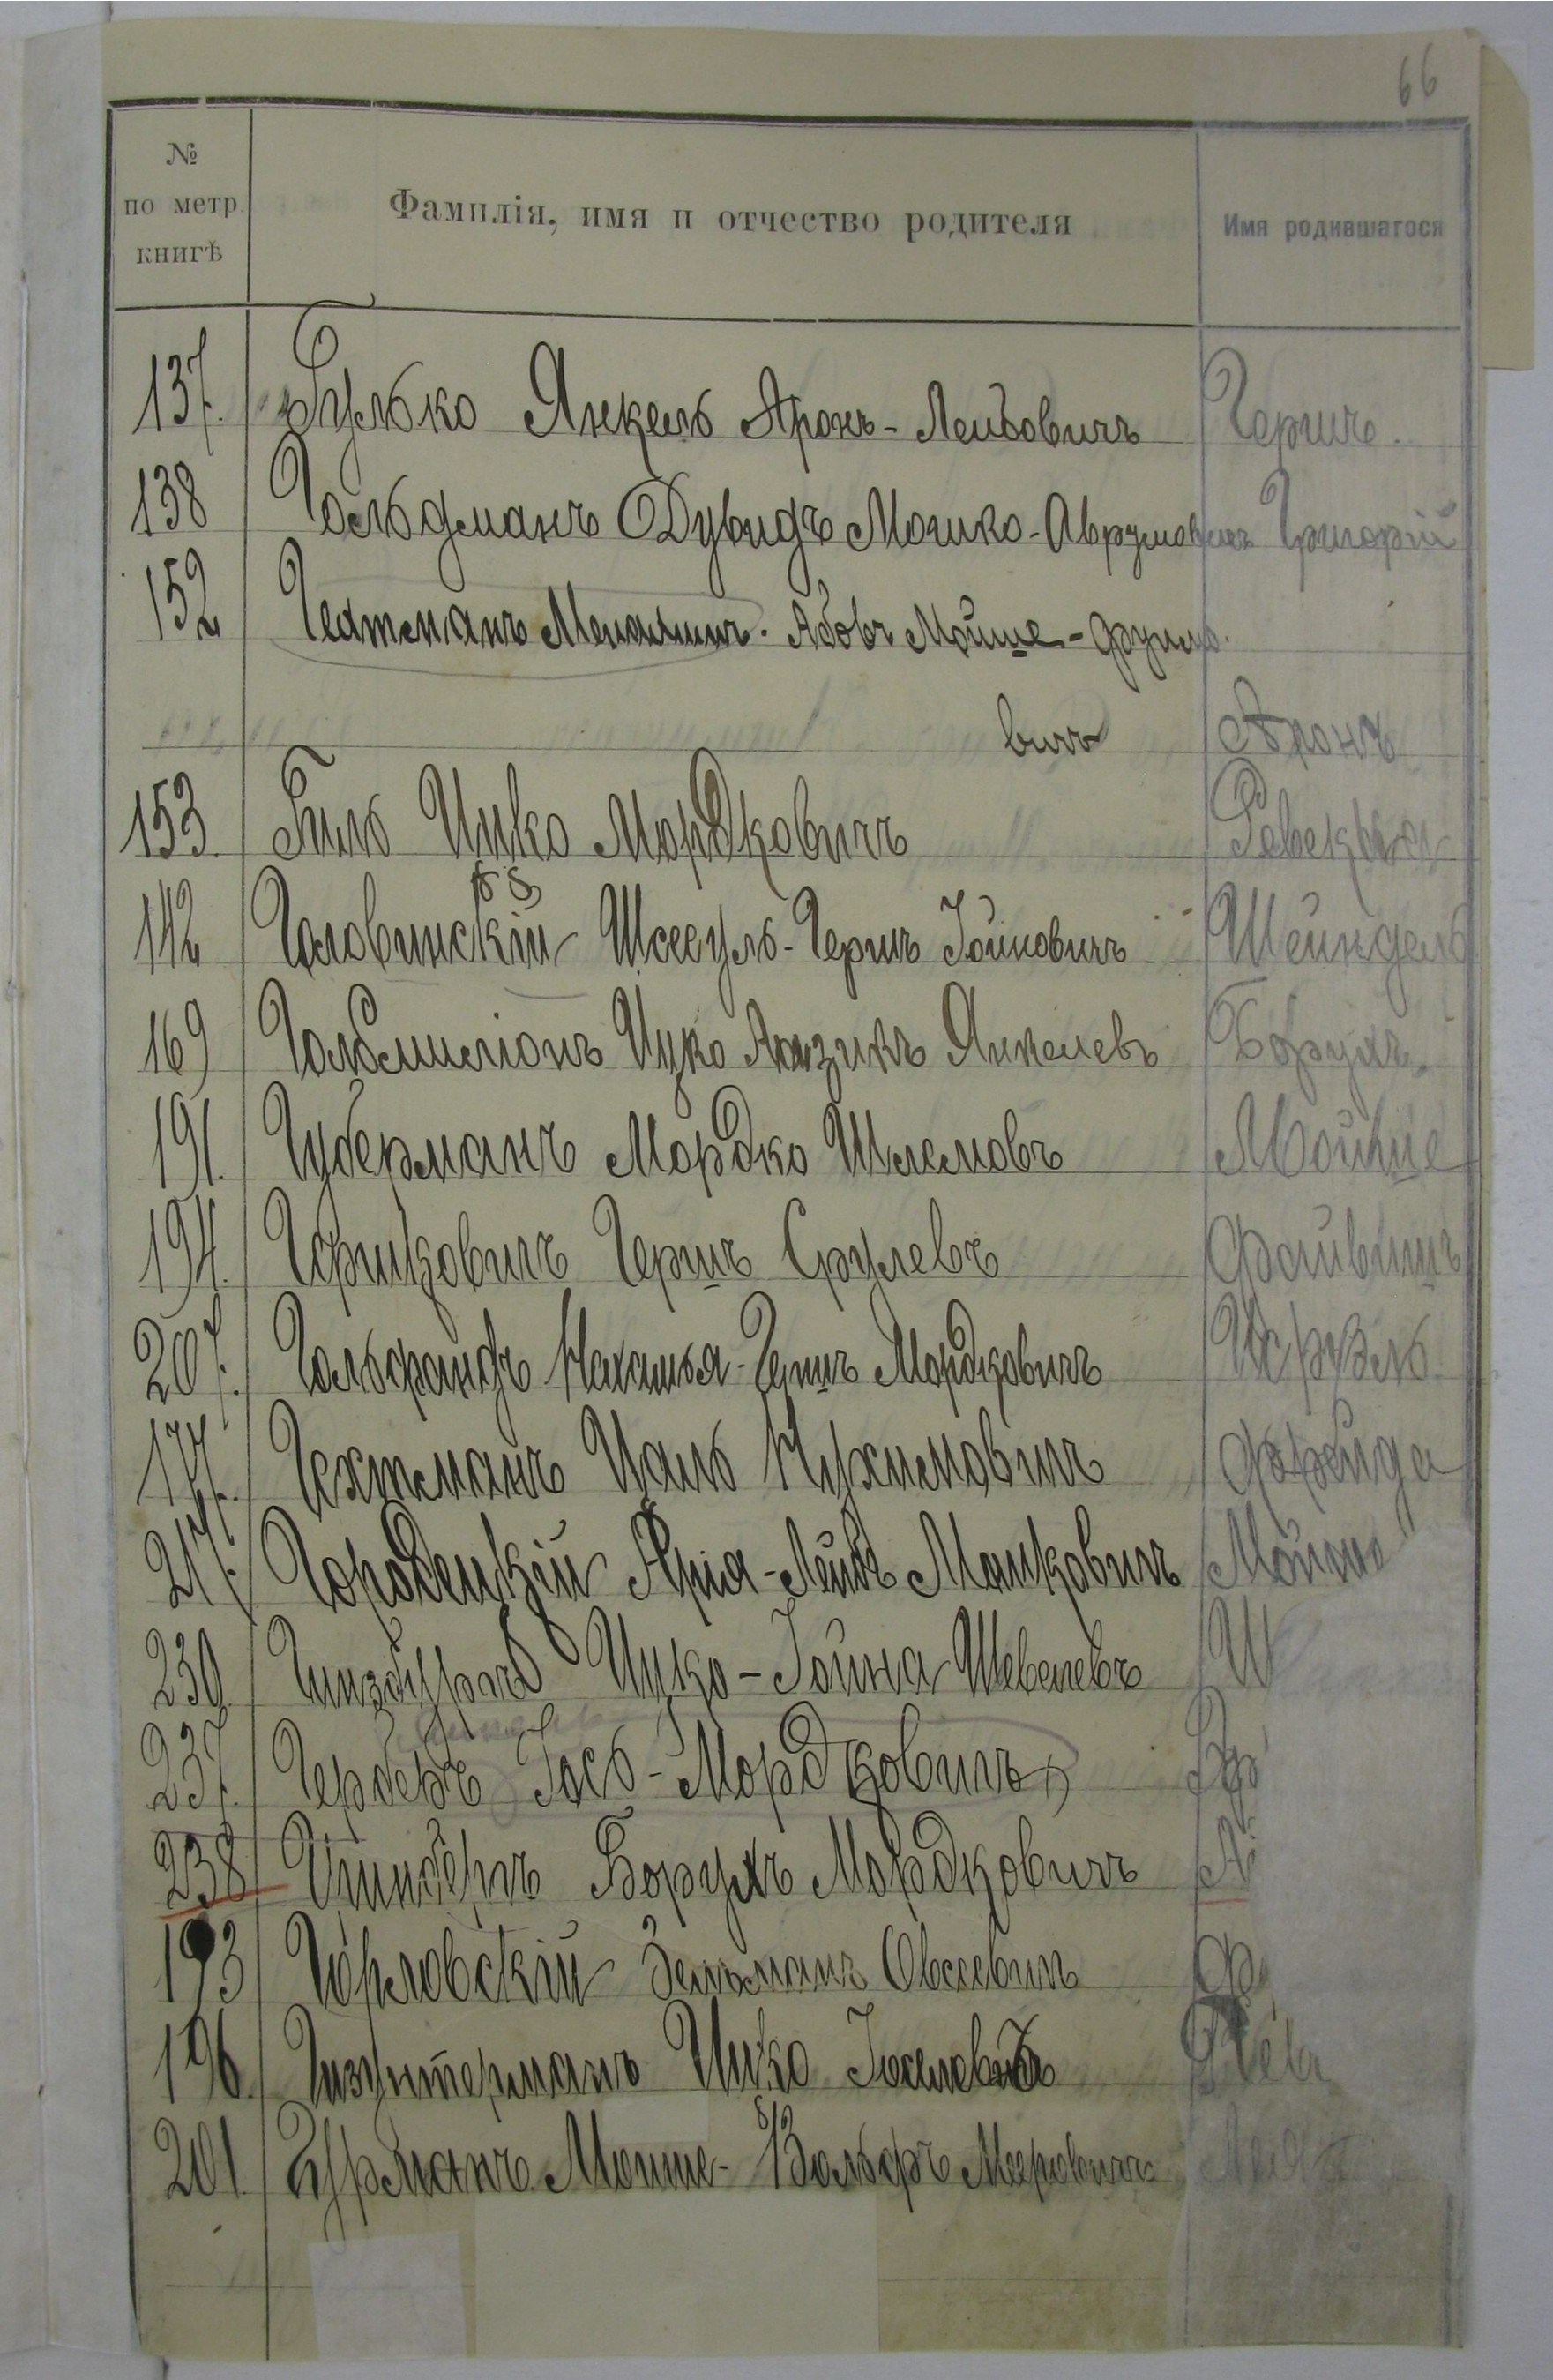 66
№ по метр. книгѣ Фамилія, имя и отчество родителя Имя родившагося
137. Гулько Янкель Аронъ-Лейбовичъ Гершъ.
138 Гольдманъ Дувидъ Мошко-Аврумовичъ Григорій
152 Гехтманъ Абовъ Мойше-Фрумо-
вичъ Аронъ
153. Гиль Ицко Мордковичъ Ревекка
142 Головинскій Гершъ Іойновичъ Шейндель
169 Ицко Айзикъ Янкелевъ Борухъ.
191. Губерманъ Мордко Шлемовъ Мойше
194. Гершковичъ Гершъ Срулевъ Файвишъ
207. Гольфандъ Нахамья-Гершъ Мордковичъ Исруэль
177. Гехтманъ Цаль Нухимовичъ Фрейда
217. Городецкій Арія-Лейбъ Машковичъ Мойше
230. Гинзбургъ Ицко-Іойна Шевелевъ Ш
237. Герберъ Іось-Мордковичъ
238 Гринбергъ Борухъ Мордковичъ А
193 Горловскій Зельманъ Овсеевичъ Ф
196. Гизунтерманъ Ицко
201. Гурманъ Мойше-Вольфъ Мееровичъ